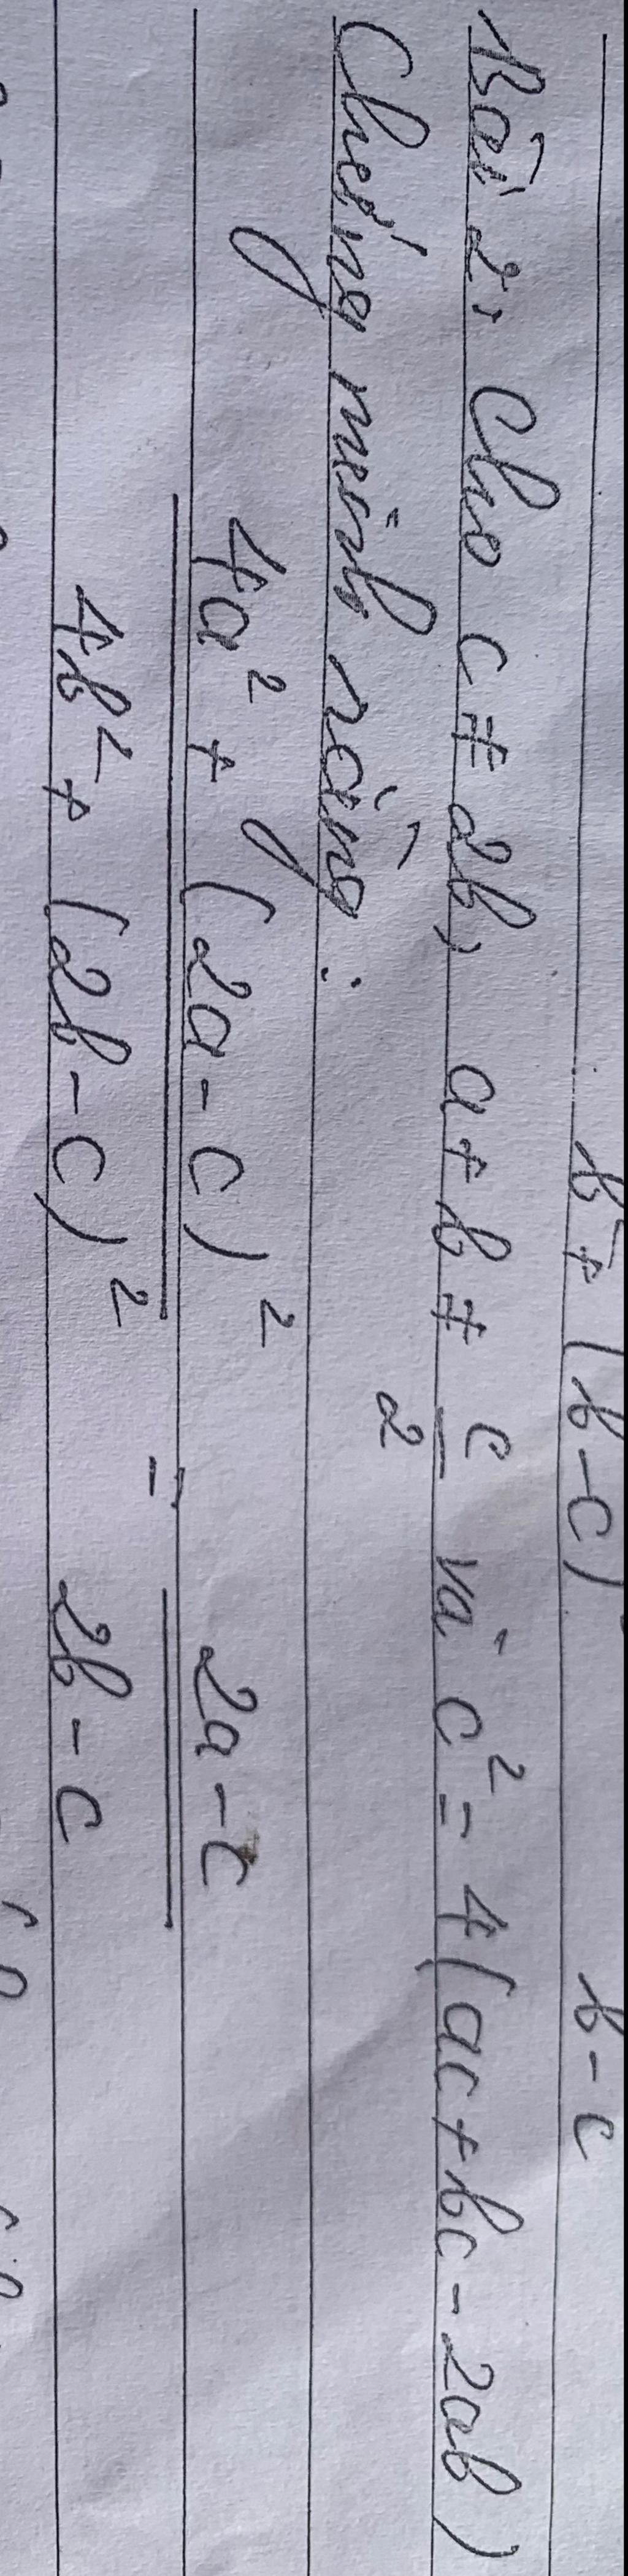 b² + (b-c)        b-c
Bài 2: Cho c ≠ 2b, a+b ≠ c/2 và c² = 4(ac+bc-2ab)
Chứng minh rằng:
4a² + (2a-c)²        2a-c
=
4b² + (2b-c)²        2b-c